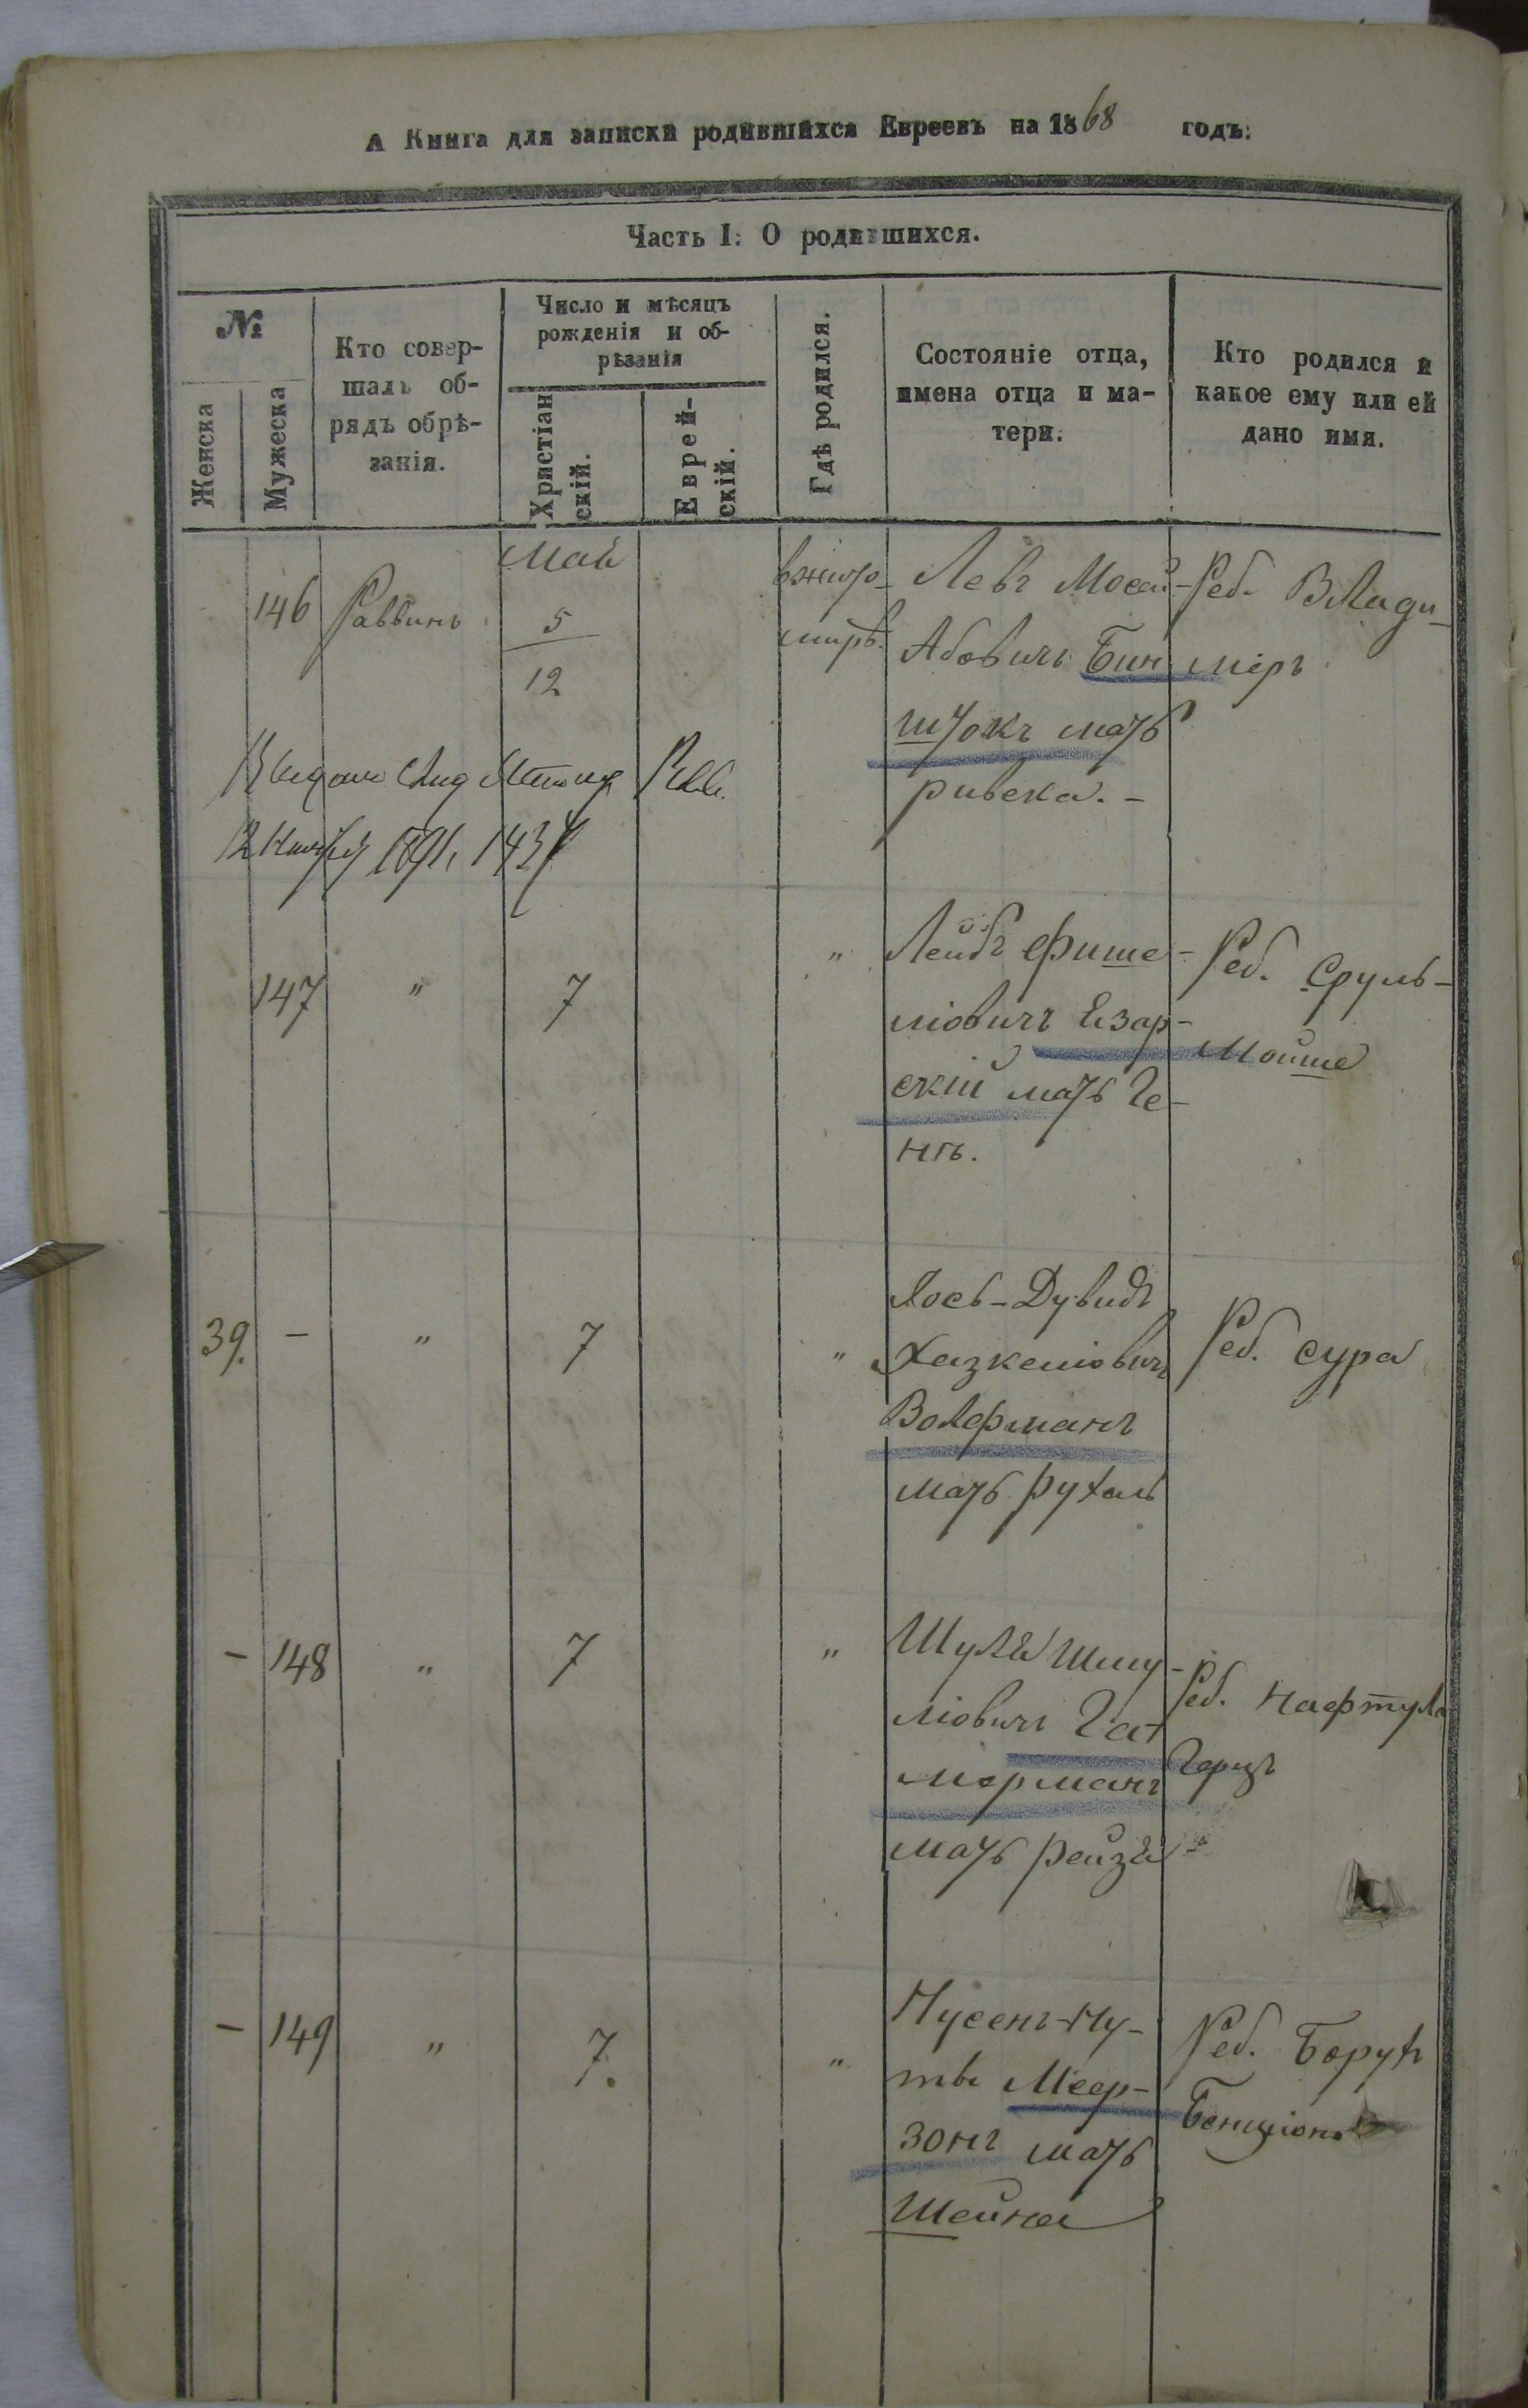 А Книга для записки родившихся Евреевъ на 1868 годъ.
Часть I. О родившихся.
№
Женска
Мужеска
Кто совер-
шалъ об-
рядъ обрѣ-
занія.
Число и мѣсяцъ
рожденія и об-
рѣзанія
Христіан
скій.
Еврей-
скій.
Гдѣ родился.
Состояніе отца,
имена отца и ма-
тери.
Кто родился и
какое ему или ей
дано имя.
146
Раввинъ
Май
5
12
вжито-
мирѣ.
Левъ Мосей-
Абовичъ Бин
штокъ мать
ривека.-
Реб. Влади-
міръ
12 1891, 1434
147
"
7
"
Лейбъ Фише-
ліовичъ Езар-
скій мать Ге-
нѣ.
Реб. Сруль-
Мойше
39.
-
"
7
"
Йось-Дувидъ
Хазкеліовичъ
Волфманъ
мать рухаль
Реб. сура
-
148
"
7
"
Шулея Шму-
ліовичъ Гат
мерманъ
мать рейзя
Реб. Нафтула
Герцъ
-
149
"
7.
"
Нусенъ-Ну-
та Меер-
зонъ мать
Шейна
Реб. Борухъ
Бенціонъ